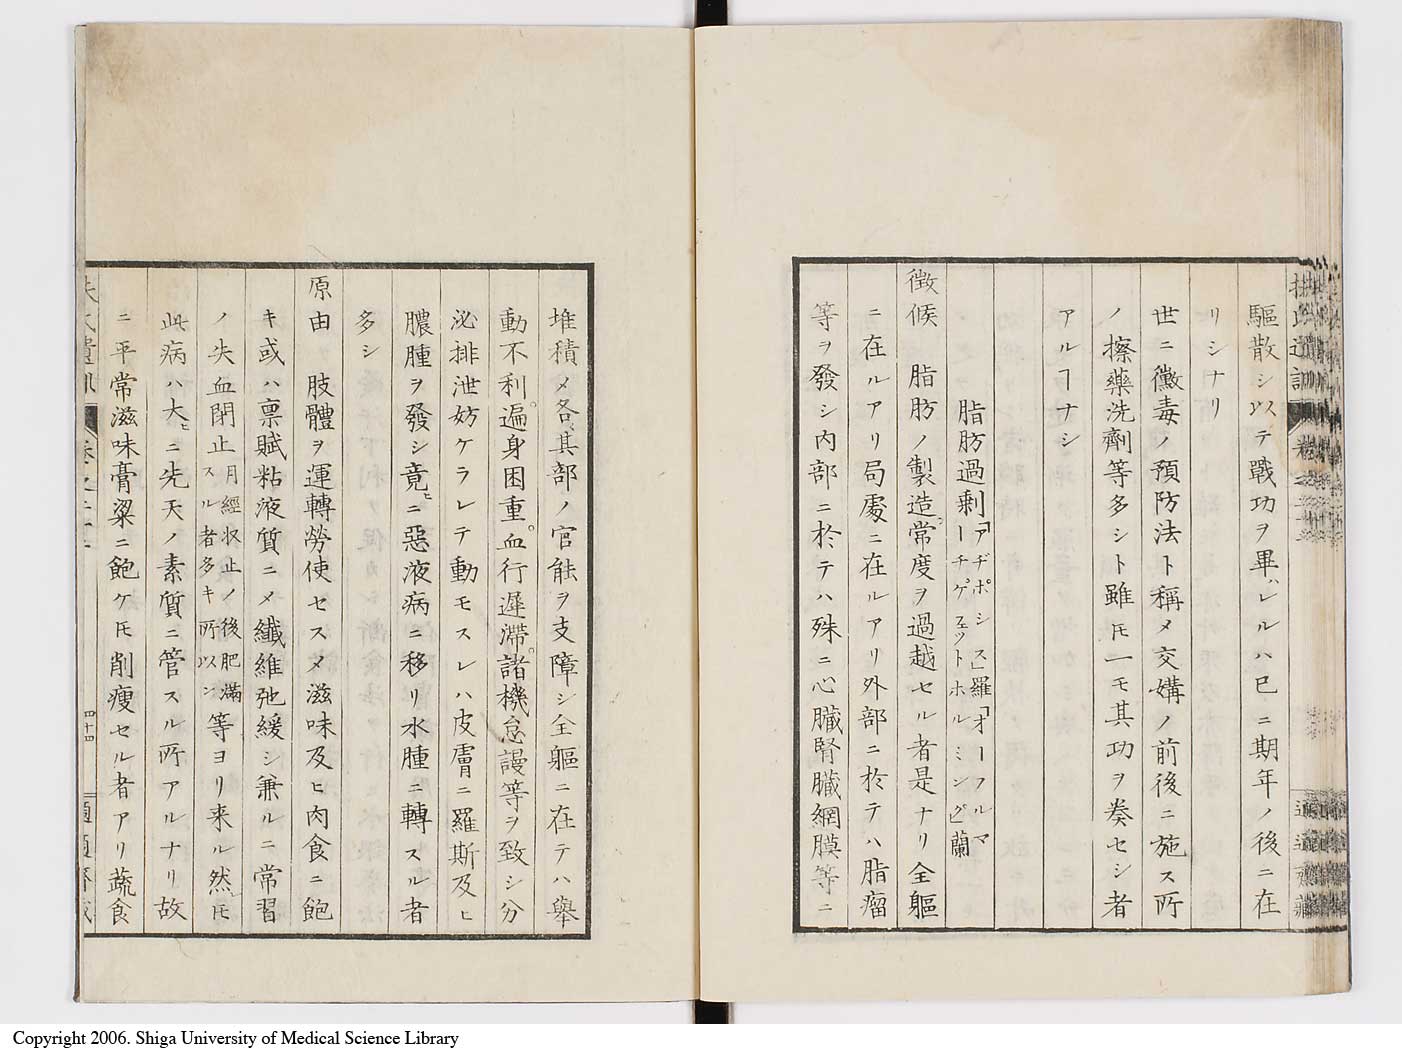 扶氏遺訓 卷之二十二
驅散シ以テ戰功ヲ畢ハレルハ已ニ期年ノ後ニ在
リシナリ
世ニ黴毒ノ預防法ト稱メ交媾ノ前後ニ施ス所
ノ擦藥洗劑等多シト雖𪜈一モ其功ヲ奏セシ者
アルヿナシ
脂肪過剰「アヂポシス」羅「オーフルマーチゲ、フェットホルミング」蘭
徴候 脂肪ノ製造常度ヲ過越セル者是ナリ全軀
ニ在ルアリ局處ニ在ルアリ外部ニ於テハ脂瘤
等ヲ發シ內部ニ於テハ殊ニ心臓腎臓網膜等ニ
堆積メ各〻其部ノ官能ヲ支障シ全軀ニ在テハ舉
動不利。遍身困重。血行遲滯。諸機怠謾等ヲ致シ分
泌排泄妨ケラレテ動モスレハ皮膚ニ羅斯及ヒ
膿腫ヲ發シ竟ヒニ惡液病ニ移リ水腫ニ轉スル者
多シ
原由 肢體ヲ運轉勞使セスメ滋味及ヒ肉食ニ飽
キ或ハ禀賦粘液質ニメ纖維弛緩シ兼ルニ常習
ノ失血閉止月經收止ノ後肥滿スル者多キ所以ン等ヨリ来ル然レ𪜈
此病ハ大ヒニ先天ノ素質ニ管スル所アルナリ故
ニ平常滋味膏粱ニ飽ケ𪜈削瘦セル者アリ蔬食
扶氏遺訓 卷之二十二 四十四 適適齋藏
Copyright 2006. Shiga University of Medical Science Library